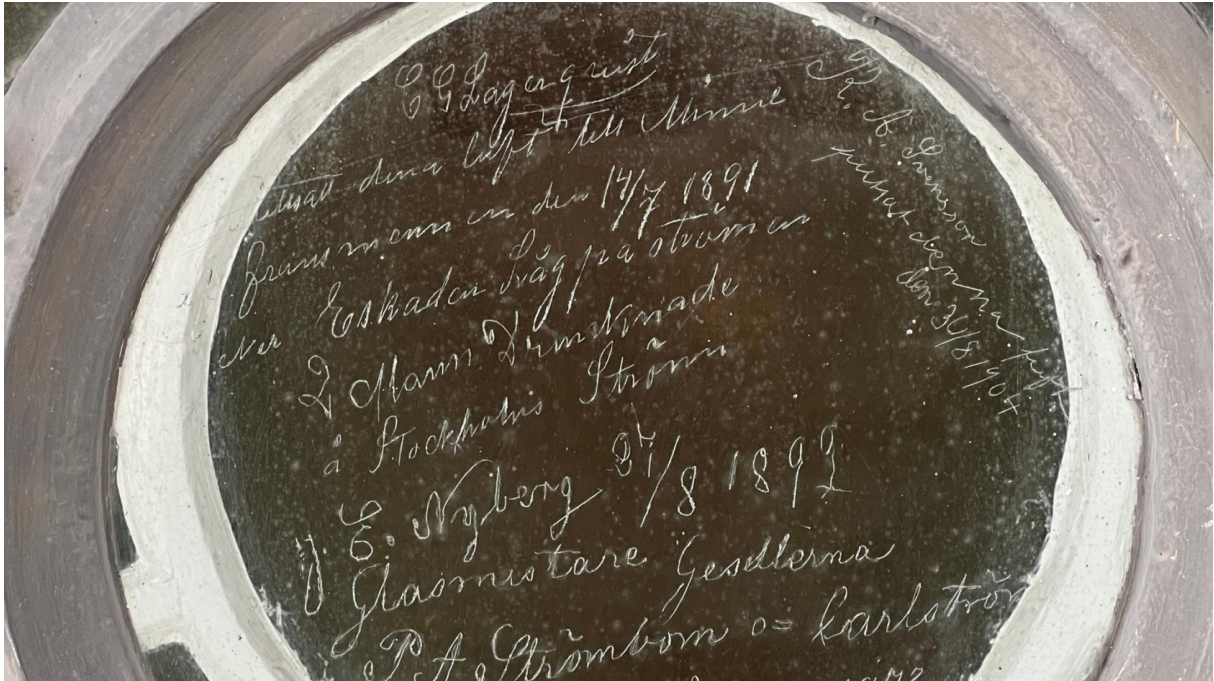 C G Lagerquist
putsat dena luft till Minne
fransmännen den 14/7 1891
när Eskadern Låg på strömmen
2 Mann Drunknade
å Stockholms Ström
E. Nyberg 27/8 1892
Glasmästare Gesällerna
P. A. Strömbom o= Karlström
K. A. Svensson
putsat denna luft
den 26/8 1904